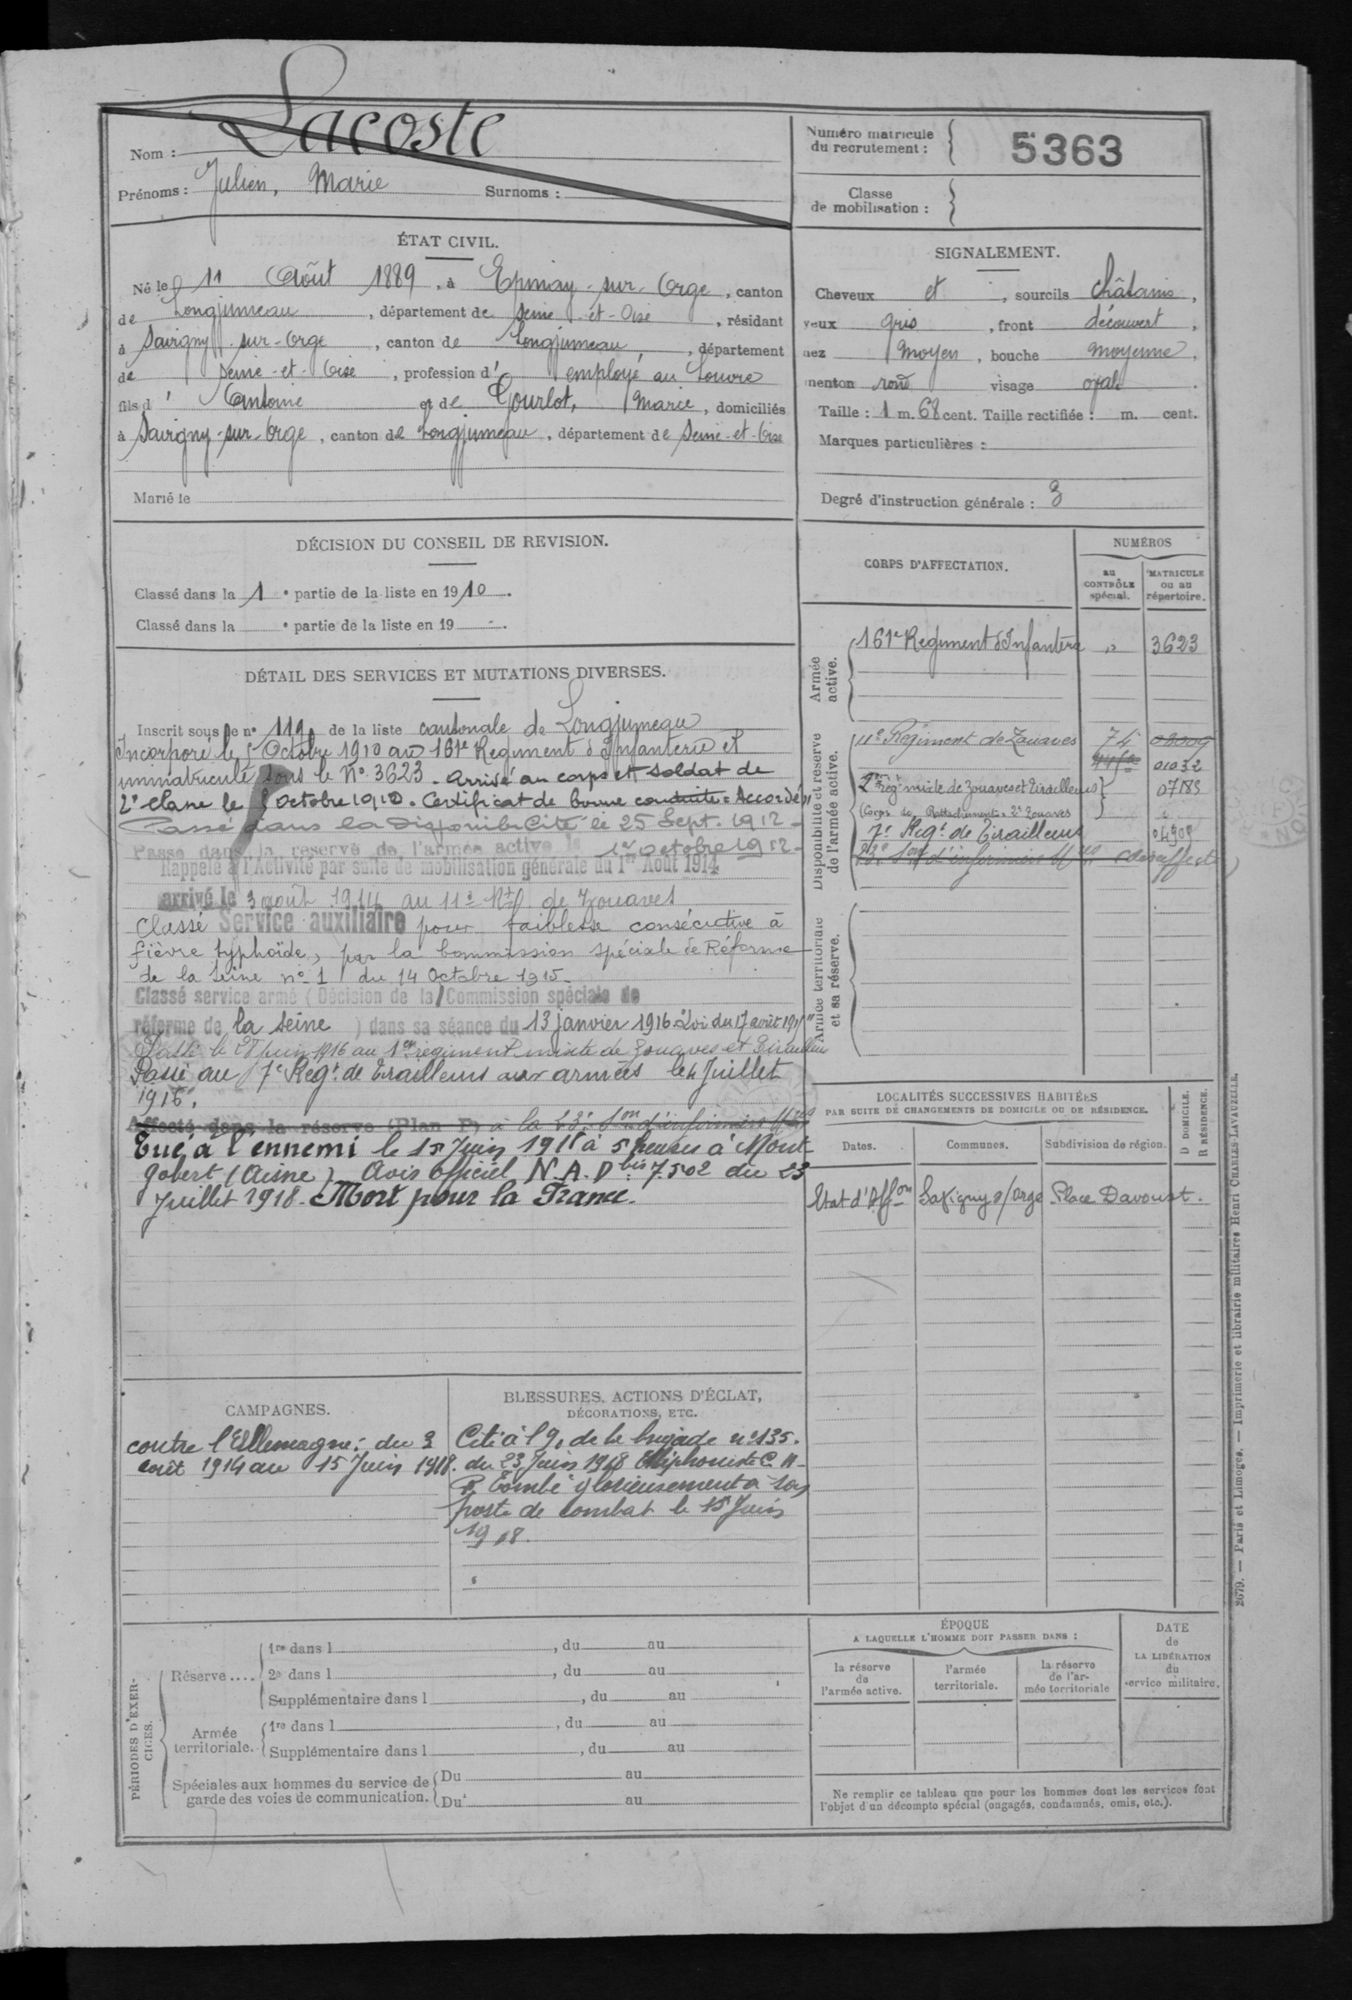 Nom : Lacoste
Prénoms : Julien, Marie Surnoms :
Numéro matricule du recrutement : 5363
Classe de mobilisation :
ÉTAT CIVIL.
Né le 11 Août 1889, à Epinay-sur-Orge, canton
de Longjumeau, département de Seine-et-Oise, résidant
à Savigny-sur-Orge, canton de Longjumeau, département
de Seine-et-Oise, profession d'employé au Louvre
fils d'Antoine et de Gourlot, Marie, domiciliés
à Savigny-sur-Orge, canton de Longjumeau, département de Seine-et-Oise
Marié le
SIGNALEMENT.
Cheveux et, sourcils châtains,
yeux gris, front découvert,
nez moyen, bouche moyenne,
menton rond visage ovale.
Taille : 1 m. 68 cent. Taille rectifiée : m. cent.
Marques particulières :
Degré d'instruction générale : 3
DÉCISION DU CONSEIL DE REVISION.
Classé dans la 1e partie de la liste en 1910.
Classé dans la e partie de la liste en 19 .
DÉTAIL DES SERVICES ET MUTATIONS DIVERSES.
Inscrit sous le n° 119 de la liste cantonale de Longjumeau
Incorporé le 5 Octobre 1910 au 161e Régiment d'Infanterie et
immatriculé sous le N° 3623. Arrivé au corps et soldat de
2e classe le 5 octobre 1910. Certificat de bonne conduite = Accordé
Passé dans la Disponibilité le 25 Sept. 1912
Passé dans la réserve de l'armée active le 1er octobre 1912
Rappelé à l'Activité par suite de mobilisation générale du 1er Août 1914
arrivé le 3 août 1914 au 11e Rt de Zouaves
Classé Service auxiliaire pour faiblesse consécutive à
fièvre typhoïde, par la Commission spéciale de Réforme
de la Seine n° 1 du 14 Octobre 1915.
Classé service armé (Décision de la Commission spéciale de
réforme de la Seine) dans sa séance du 13 janvier 1916 "Loi du 17 août 1915"
Passé le 28 juin 1916 au 1er régiment mixte de Zouaves et Tirailleurs
Passé au 7e Régt de Tirailleurs aux armées le 4 Juillet
1916.
Affecté dans la réserve (Plan F) à la 23e Son d'infirmiers Mres
Tué à l'ennemi le 15 Juin 1918 à 5 heures à Mont
gobert (Aisne) Avis officiel N.A. D bis 7502 du 23
Juillet 1918. Mort pour la France.
CORPS D'AFFECTATION.
NUMÉROS
au CONTRÔLE spécial.
MATRICULE ou au répertoire.
Armée active.
161e Régiment d'Infanterie " 3623
Disponibilité et réserve de l'armée active.
11e Régiment de Zouaves 74
01032
2e Régt mixte de Zouaves et Tirailleurs 07183
(Corps de Rattachement = 2e Zouaves
7e Régt de Tirailleurs 04909
23e Son d'infirmiers Mres
Armée territoriale et sa réserve.
LOCALITÉS SUCCESSIVES HABITÉES
PAR SUITE DE CHANGEMENTS DE DOMICILE OU DE RÉSIDENCE.
Dates. Communes. Subdivision de région.
D DOMICILE.
R RÉSIDENCE.
Etat d'Affon Savigny s/Orge Place Davoust.
CAMPAGNES.
contre l'Allemagne : du 3
août 1914 au 15 Juin 1918.
BLESSURES, ACTIONS D'ÉCLAT,
DÉCORATIONS, ETC.
Cité à l'O. de la brigade n° 135.
du 23 Juin 1918 Téléphoniste C.H.
R. Tombé glorieusement à son
poste de combat le 15 Juin
1918.
PÉRIODES D'EXERCICES.
Réserve....
1re dans l , du au
2e dans l , du au
Supplémentaire dans l , du au
Armée territoriale.
1re dans l , du au
Supplémentaire dans l , du au
Spéciales aux hommes du service de garde des voies de communication.
Du au
Du au
ÉPOQUE
A LAQUELLE L'HOMME DOIT PASSER DANS :
la réserve de l'armée active.
l'armée territoriale.
la réserve de l'armée territoriale
DATE de LA LIBÉRATION du service militaire.
Ne remplir ce tableau que pour les hommes dont les services font
l'objet d'un décompte spécial (engagés, condamnés, omis, etc.).
2679. — Paris et Limoges. — Imprimerie et librairie militaires Henri CHARLES-LAVAUZELLE.